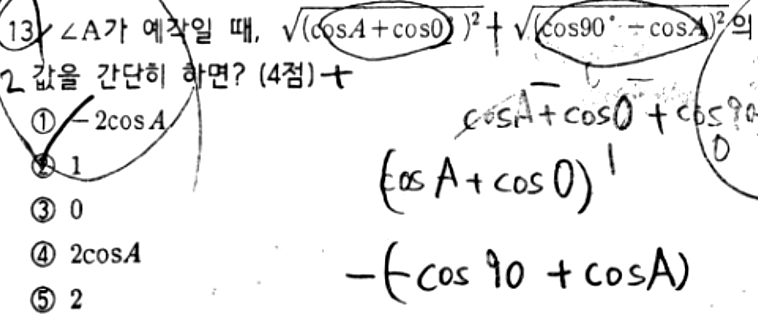 13. ∠A가 예각일 때, √(cosA+cos0°)² + √(cos90°-cosA)²의
값을 간단히 하면? (4점) +
① -2cosA
② 1
③ 0
④ 2cosA
⑤ 2
cosA+cos0+cos90
0
(cos A+cos 0) 1
-(-cos 90 + cosA)